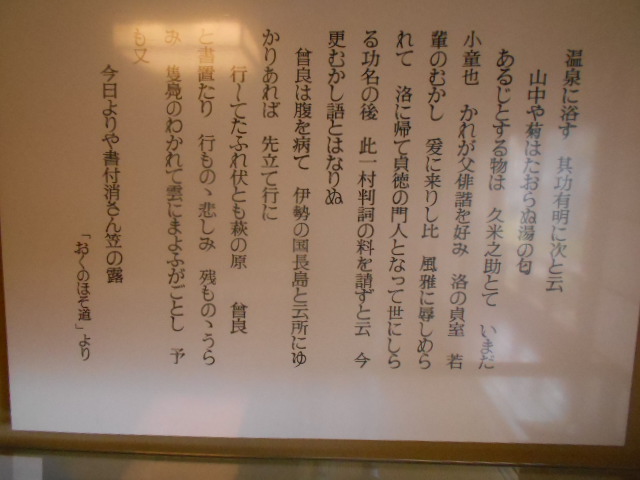 温泉に浴す　其功有明に次と云
山中や菊はたおらぬ湯の匂
あるじとする物は　久米之助とて　いまだ
小童也　かれが父俳諧を好み　洛の貞室　若
輩のむかし　爰に来りし比　風雅に辱しめら
れて　洛に帰て貞徳の門人となって世にしら
る　功名の後　此一村判詞の料を請ずと云　今
更むかし語とはなりぬ
曾良は腹を病て　伊勢の国長島と云所にゆ
かりあれば　先立て行に
行〱てたふれ伏とも萩の原　曾良
と書置たり　行ものゝ悲しみ　残ものゝうら
み　隻鳧のわかれて雲にまよふがごとし　予
も又
今日よりや書付消さん笠の露
「おくのほそ道」より